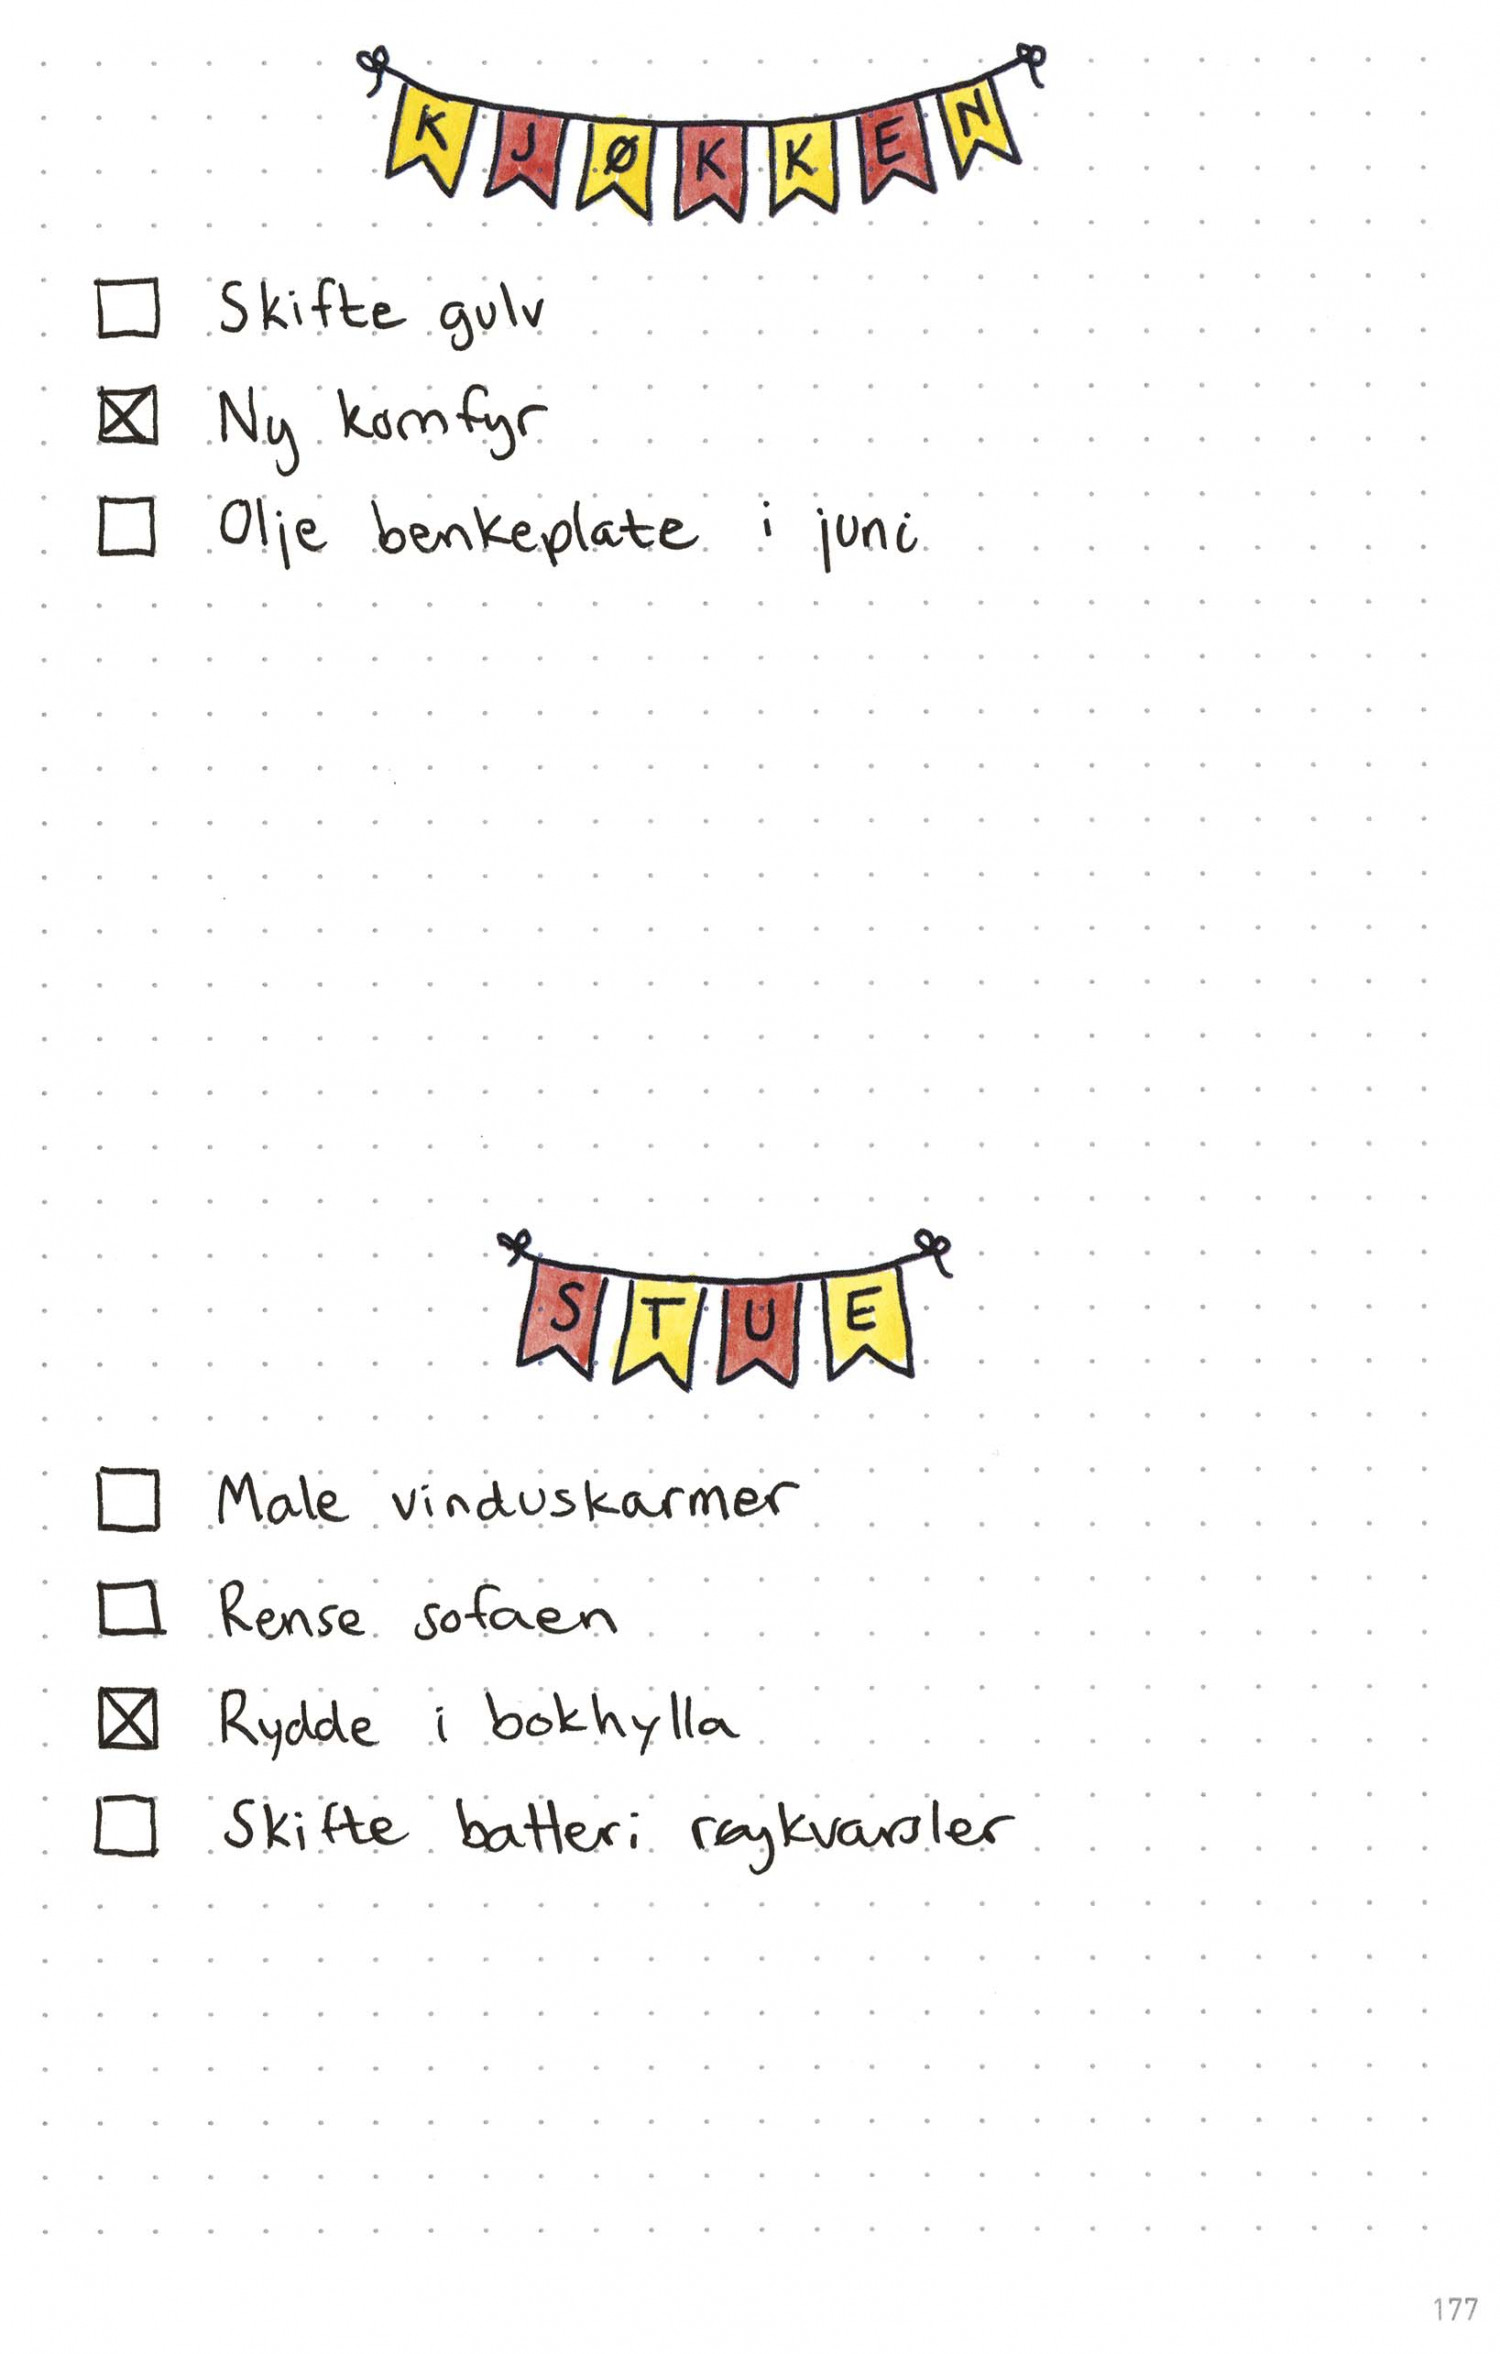 KJØKKEN
Skifte gulv
Ny komfyr
Olje benkeplate i juni
STUE
Male vinduskarmer
Rense sofaen
Rydde i bokhylla
Skifte batteri røykvarsler
177